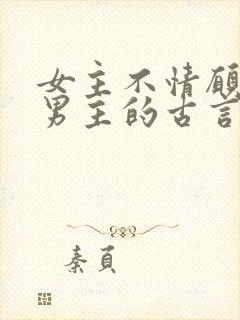 女主不情愿
男主的古言
秦頁